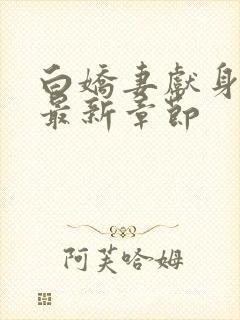 白嬌妻獻身
最新章節
阿芙哈姆